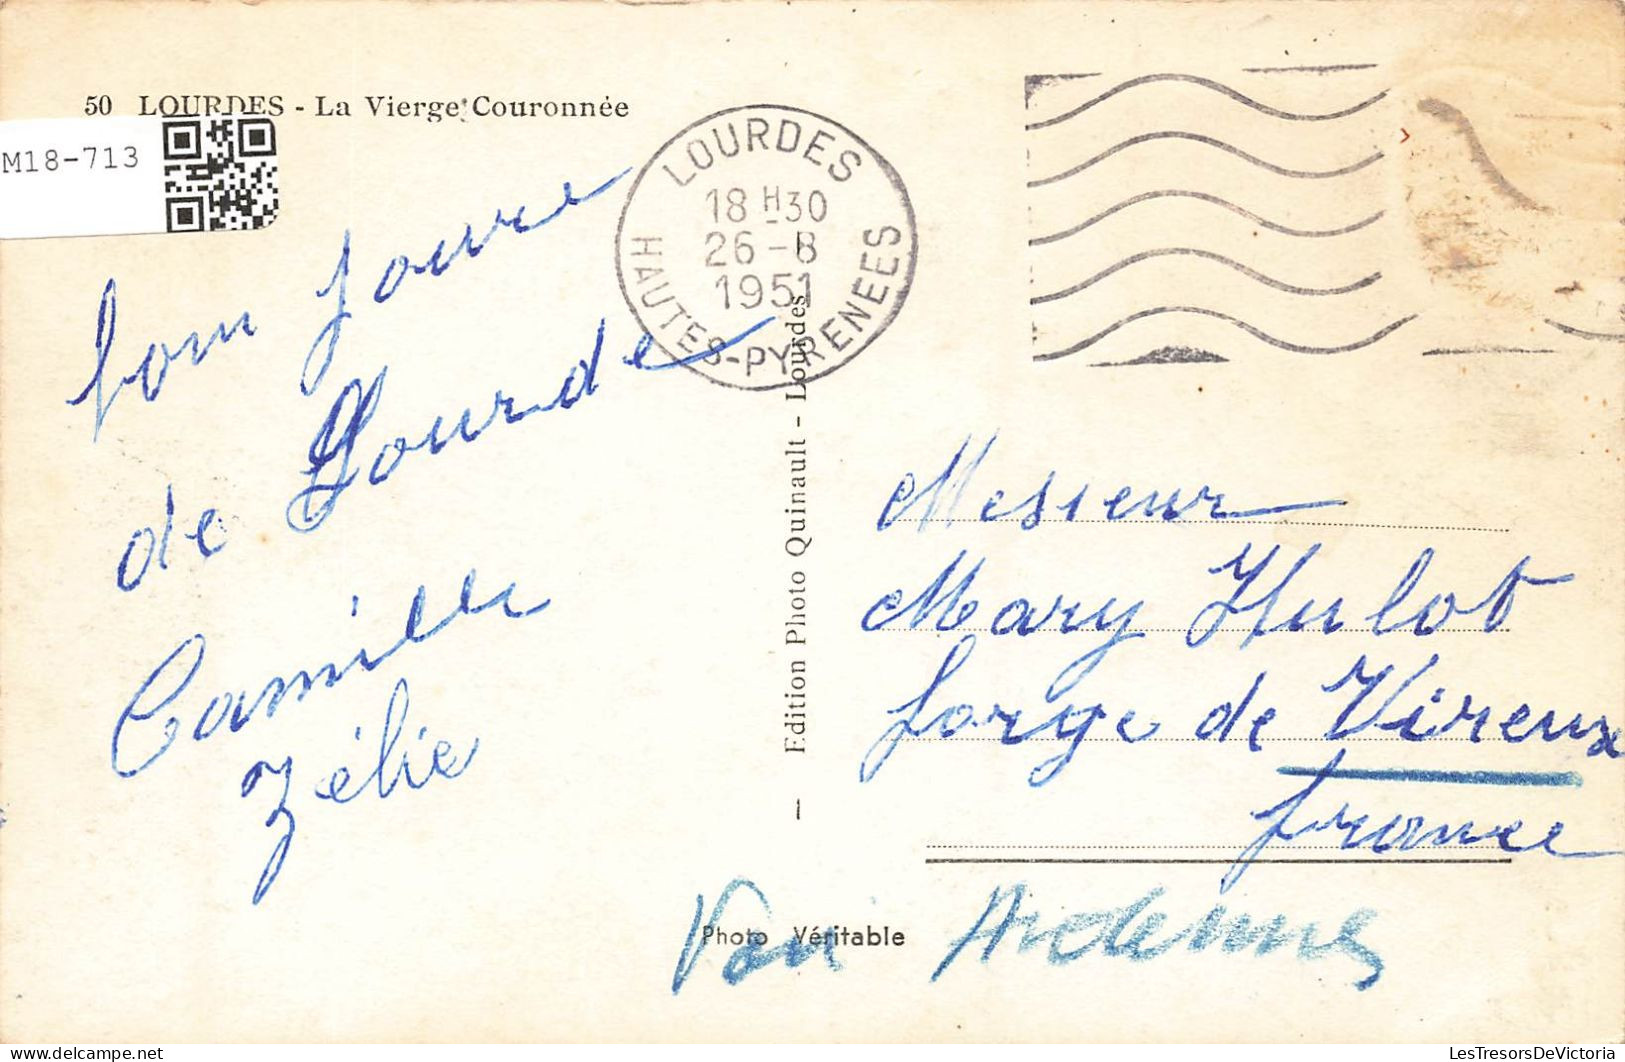 50 LOURDES - La Vierge Couronnée
M18-713
LOURDES
18 H 30
26 - 8
1951
HAUTES-PYRENEES
bom Joure
de Lourde
Camille
Zélie
— Edition Photo Quinault - Lourdes
Mesieur
Mary Hulot
forge de Vireux
france
Photo Véritable
Ardennes
LesTresorsDeVictoria
www.delcampe.net